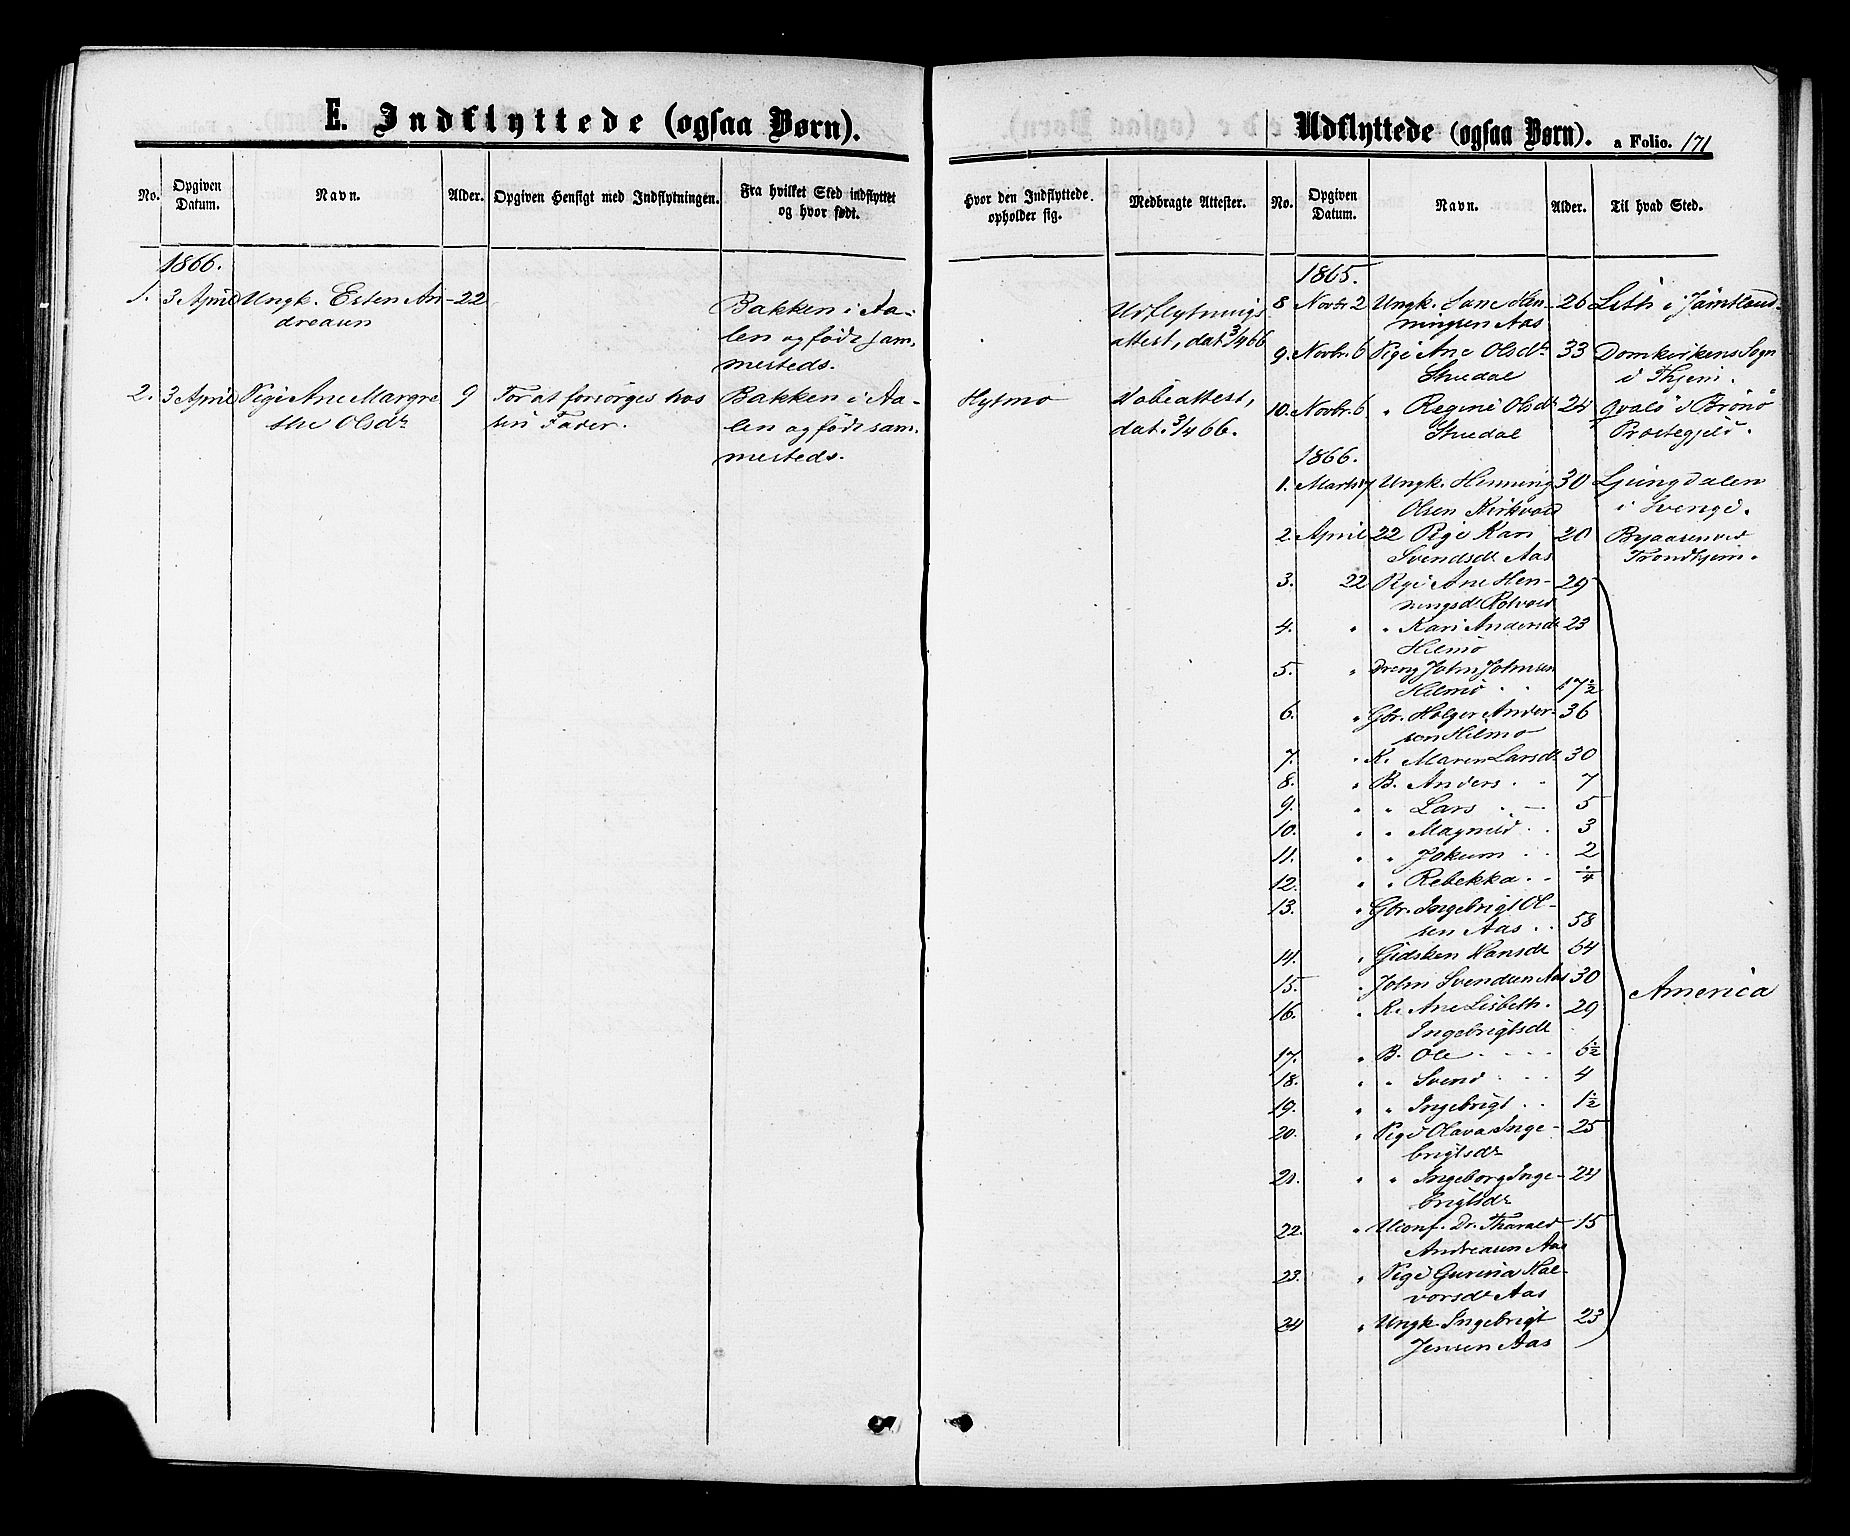 E. Indflyttede (ogsaa Børn).
No. Opgiven Datum. Navn. Alder. Opgiven Hensigt med Indflytningen. Fra hvilket Sted indflyttet og hvor født.
1866.
1. 3 April Ungk. Esten An- 22 Bakken i Aa-
dreasen len og født sam-
mesteds.
2. 3 April Pige Ane Margre 9 For at forsørges hos Bakken i Aa-
the Olsdr sin Fader. len og født sam-
mesteds.
Udflyttede (ogsaa Børn). a Folio. 171
Hvor den Indflyttede opholder sig. Medbragte Attester. No. Opgiven Datum. Navn. Alder. Til hvad Sted.
Udflytnings
attest, dat. 3/4 66
Hylmo Daabsattest,
dat. 3/4 66.
1865.
8 Novbr 2 Ungk. Lane Hen- 26 Lith i Jämtland
ningsen Aas
9. Novbr. 6 Pige Ane Olsdr 33 Domkirkens Sogn
Stuedal i Thjem.
10. Novbr. 6 " Regine Olsdr 24 Qvalø i Brønø
Stuedal Præstegjeld.
1866.
1. Marts 17 Ungk. Henning 30 Ljungdalen
Olsen Kirkvold i Sverige.
2. April 22 Pige Kari 20 Byaasen ved
Svendsdr Aas Trondhjem.
3. 22 Pige Ane Hen- 29
ningsdr Rotvold
4. " " Kari Andersdr 23
Hilmo
5. " Dreng John Johnsen
Hilmo . . 17½
6. " Gbr. Holger Ander- 36
sen Hilmo
7. " K. Maren Larsdr 30
8. " B. Anders . . 7
9. " " Lars . - 5
10. " " Magnild . . 3
11. " " Jokum . . 2
12. " " Rebekka . . ¼
13. " Gbr. Ingebrigt Ol-
sen Aas . . 58
14. " Gidsken Hansdr 54
15. " John Svendsen Aas 30 America
16. " K. Ane Lisbeth. 29
Ingebrigtsdr
17. " B. Ole . . . . 6½
18. " " Svend . . . 4
19. " " Ingebrigt . . 1½
20. " Pige Olava Inge- 25
brigtsdr
21. " " Ingeborg Inge- 24
brigtsdr
22. " Uconf. Dr. Tharald 15
Andreasen Aas
23. " Pige Gurina Hal-
vorsdr Aas
24 " Ungk Ingebrigt 23
Jensen Aas